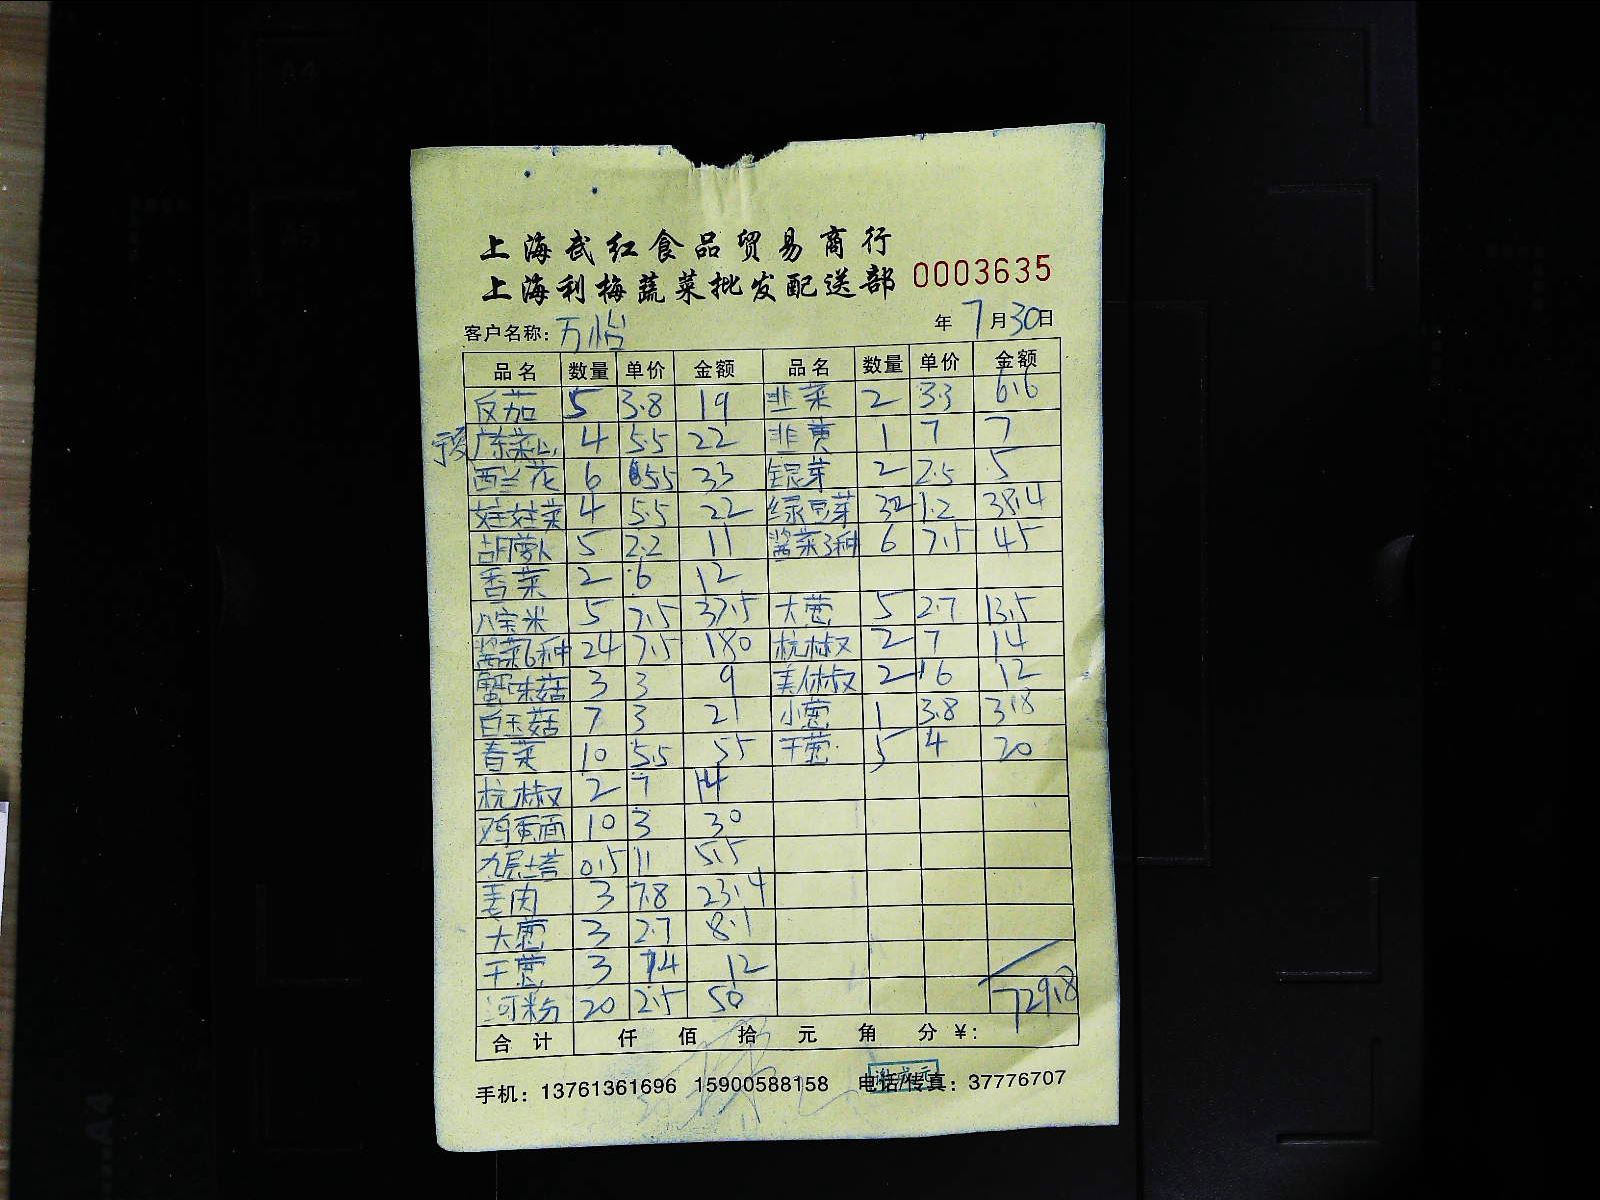 上海武红食品贸易商行
上海利梅蔬菜批发配送部 0003635
客户名称: 万怡 年 7月30日
品名 数量 单价 金额 品名 数量 单价 金额
反茄 5 3.8 19 韭菜 2 3.3 6.6
广东菜心 4 5.5 22 韭黄 1 7 7
西兰花 6 5.5 33 银芽 2 2.5 5
娃娃菜 4 5.5 22 绿豆芽 32 1.2 38.4
胡萝卜 5 2.2 11 酱菜3种 6 7.5 45
香菜 2 6 12
八宝米 5 7.5 37.5 大葱 5 2.7 13.5
酱菜6种 24 7.5 180 杭椒 2 7 14
蟹味菇 3 3 9 美人椒 2 6 12
白玉菇 7 3 21 小葱 1 3.8 3.8
春菜 10 5.5 55 干葱 5 4 20
杭椒 2 7 14
鸡蛋面 10 3 30
九层塔 0.5 11 5.5
姜肉 3 7.8 23.4
大葱 3 2.7 8.1
干葱 3 4 12
河粉 20 2.5 50 729.8
合计 仟 佰 拾 元 角 分 ¥:
手机: 13761361696 15900588158 电话/传真: 37776707